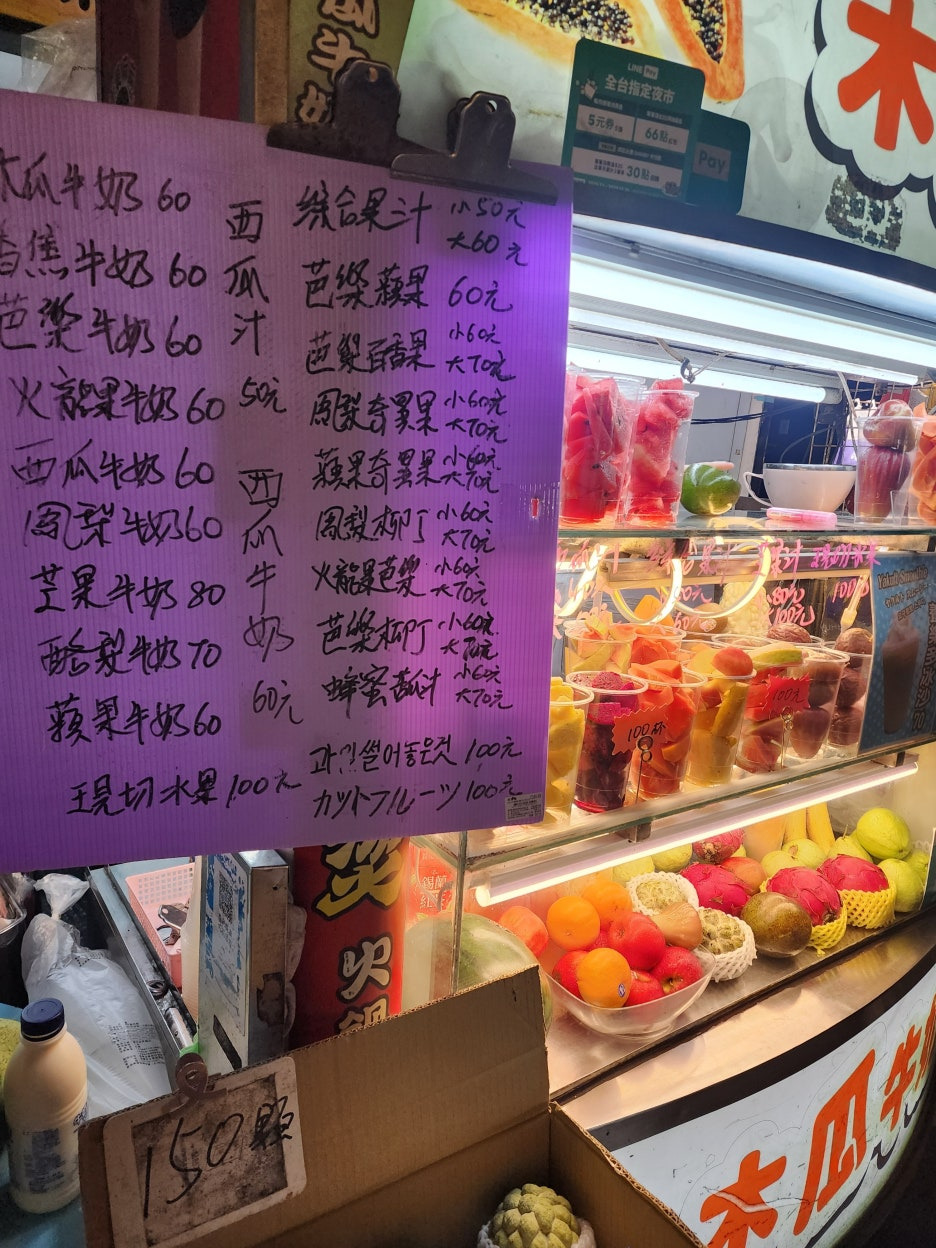 木瓜牛奶 60
香焦牛奶 60
芭樂牛奶 60
火龍果牛奶 60
西瓜牛奶 60
鳳梨牛奶 60
芒果牛奶 80
酪梨牛奶 70
蘋果牛奶 60
現切水果 100元
西瓜汁
50元
西瓜牛奶
60元
綜合果汁 小50元
大60元
芭樂蘋果 60元
芭樂百香果 小60元
大70元
鳳梨奇異果 小60元
大70元
蘋果奇異果 小60元
大70元
鳳梨柳丁 小60元
大70元
火龍果芭樂 小60元
大70元
芭樂柳丁 小60元
大70元
蜂蜜苦瓜汁 小60元
大70元
과일썰어놓은것 100元
カットフルーツ 100元
LINE Pay
全台指定夜市
5元券
66點
30點
Pay
木
100元
80元
100元
100元
100杯
100元
火鍋
150顆
木瓜牛